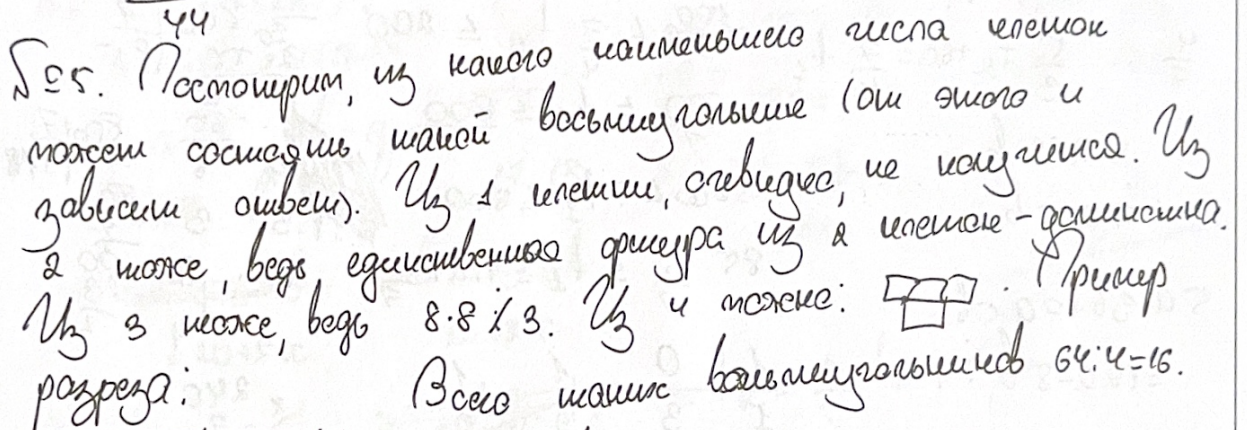 44
№5. Посмотрим, из какого наименьшего числа клеток
может состоять такой восьмиугольник (от этого и
зависит ответ). Из 1 клетки, очевидно, не получится. Из
2 тоже, ведь единственная фигура из 2 клеток - доминошка.
Из 3 тоже, ведь 8·8 ⁒ 3. Из 4 можно: . Пример
разреза: Всего таких восьмиугольников 64:4=16.